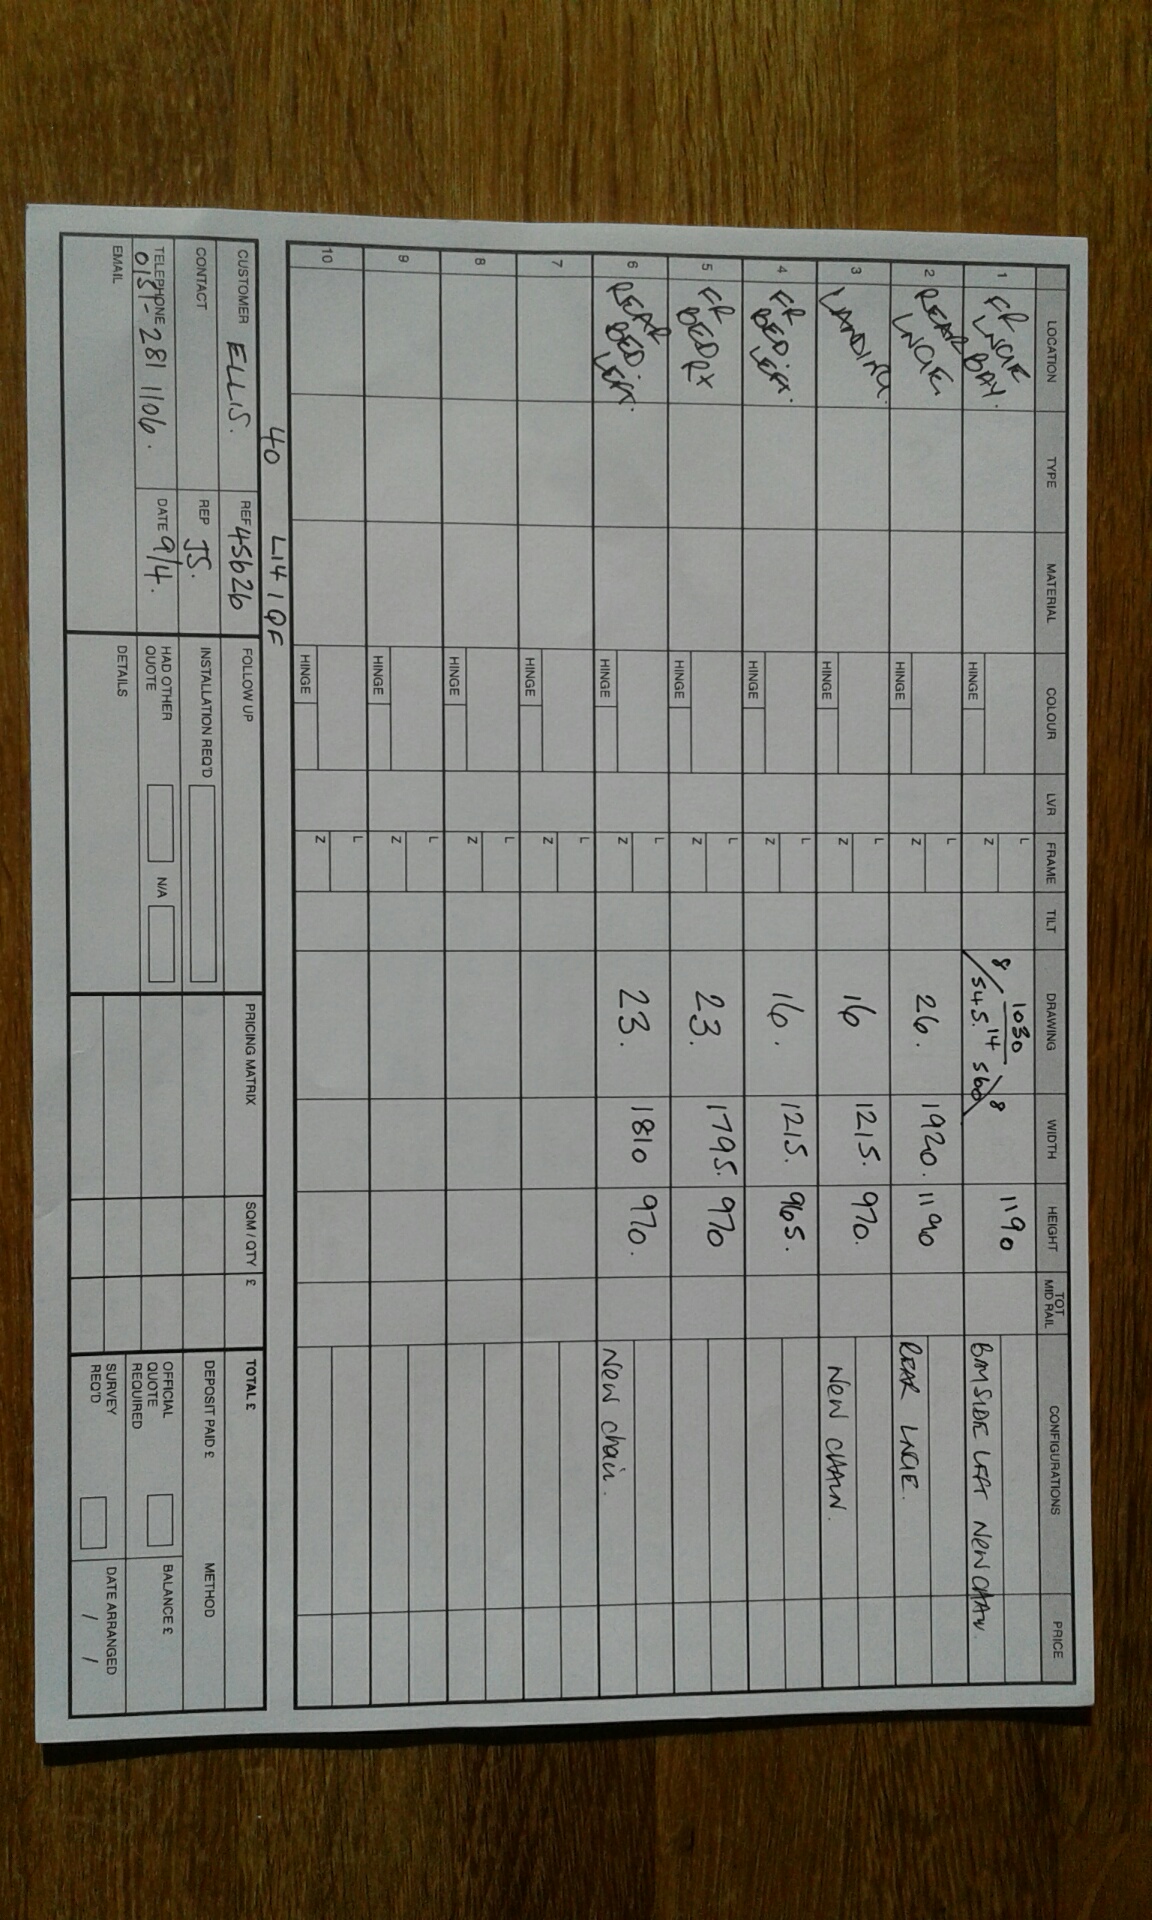 LOCATION TYPE MATERIAL COLOUR LVR FRAME TILT DRAWING WIDTH HEIGHT TOT MID RAIL CONFIGURATIONS PRICE
1 FR LNGE BAY. HINGE L Z 8/545. 1030 14 560\8 1190 BAYSIDE LEFT NEW CHAIN.
2 REAR LNGE HINGE L Z 26. 1920. 1190 REAR LNGE.
3 LANDING. HINGE L Z 16 1215. 970. NEW CHAIN.
4 FR BED LEFT. HINGE L Z 16. 1215. 965.
5 FR BED RX HINGE L Z 23. 1795. 970
6 REAR BED. LEFT. HINGE L Z 23. 1810 970. New chain.
7 HINGE L Z
8 HINGE L Z
9 HINGE L Z
10 HINGE L Z
40 L14 1QF
CUSTOMER ELLIS. REF 45626 FOLLOW UP PRICING MATRIX SQM / QTY £ TOTAL £
CONTACT REP JS. INSTALLATION REQ'D DEPOSIT PAID £ METHOD
TELEPHONE 0151-281 1106. DATE 9/4. HAD OTHER QUOTE N/A OFFICIAL QUOTE REQUIRED BALANCE £
EMAIL DETAILS SURVEY REQ'D DATE ARRANGED / /